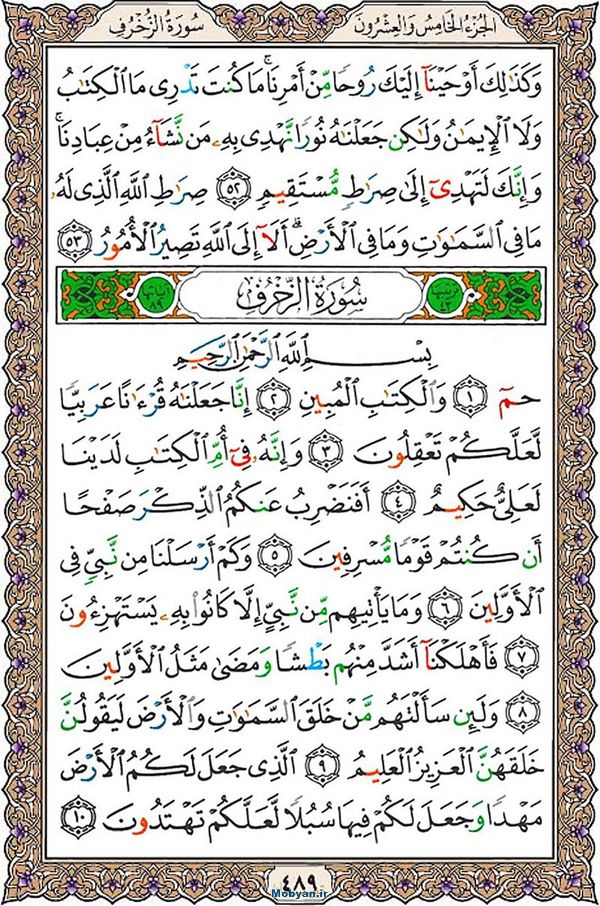 الجزء الخامس والعشرون
سورة الزخرف
وَكَذَٰلِكَ أَوْحَيْنَآ إِلَيْكَ رُوحًا مِّنْ أَمْرِنَا ۚ مَا كُنتَ تَدْرِى مَا الْكِتَٰبُ
وَلَا الْإِيمَٰنُ وَلَٰكِن جَعَلْنَٰهُ نُورًا نَّهْدِى بِهِۦ مَن نَّشَآءُ مِنْ عِبَادِنَا ۚ
وَإِنَّكَ لَتَهْدِىٓ إِلَىٰ صِرَٰطٍ مُّسْتَقِيمٍ ﴿٥٢﴾ صِرَٰطِ اللَّهِ الَّذِى لَهُۥ
مَا فِى السَّمَٰوَٰتِ وَمَا فِى الْأَرْضِ ۗ أَلَآ إِلَى اللَّهِ تَصِيرُ الْأُمُورُ ﴿٥٣﴾
سُورَةُ الزُّخْرُفِ
بِسْمِ اللَّهِ الرَّحْمَٰنِ الرَّحِيمِ
حمٓ ﴿١﴾ وَالْكِتَٰبِ الْمُبِينِ ﴿٢﴾ إِنَّا جَعَلْنَٰهُ قُرْءَٰنًا عَرَبِيًّا
لَّعَلَّكُمْ تَعْقِلُونَ ﴿٣﴾ وَإِنَّهُۥ فِىٓ أُمِّ الْكِتَٰبِ لَدَيْنَا
لَعَلِىٌّ حَكِيمٌ ﴿٤﴾ أَفَنَضْرِبُ عَنكُمُ الذِّكْرَ صَفْحًا
أَن كُنتُمْ قَوْمًا مُّسْرِفِينَ ﴿٥﴾ وَكَمْ أَرْسَلْنَا مِن نَّبِىٍّ فِى
الْأَوَّلِينَ ﴿٦﴾ وَمَا يَأْتِيهِم مِّن نَّبِىٍّ إِلَّا كَانُوا بِهِۦ يَسْتَهْزِءُونَ
﴿٧﴾ فَأَهْلَكْنَآ أَشَدَّ مِنْهُم بَطْشًا وَمَضَىٰ مَثَلُ الْأَوَّلِينَ
﴿٨﴾ وَلَئِن سَأَلْتَهُم مَّنْ خَلَقَ السَّمَٰوَٰتِ وَالْأَرْضَ لَيَقُولُنَّ
خَلَقَهُنَّ الْعَزِيزُ الْعَلِيمُ ﴿٩﴾ الَّذِى جَعَلَ لَكُمُ الْأَرْضَ
مَهْدًا وَجَعَلَ لَكُمْ فِيهَا سُبُلًا لَّعَلَّكُمْ تَهْتَدُونَ ﴿١٠﴾
٤٨٩
Mobyan.ir